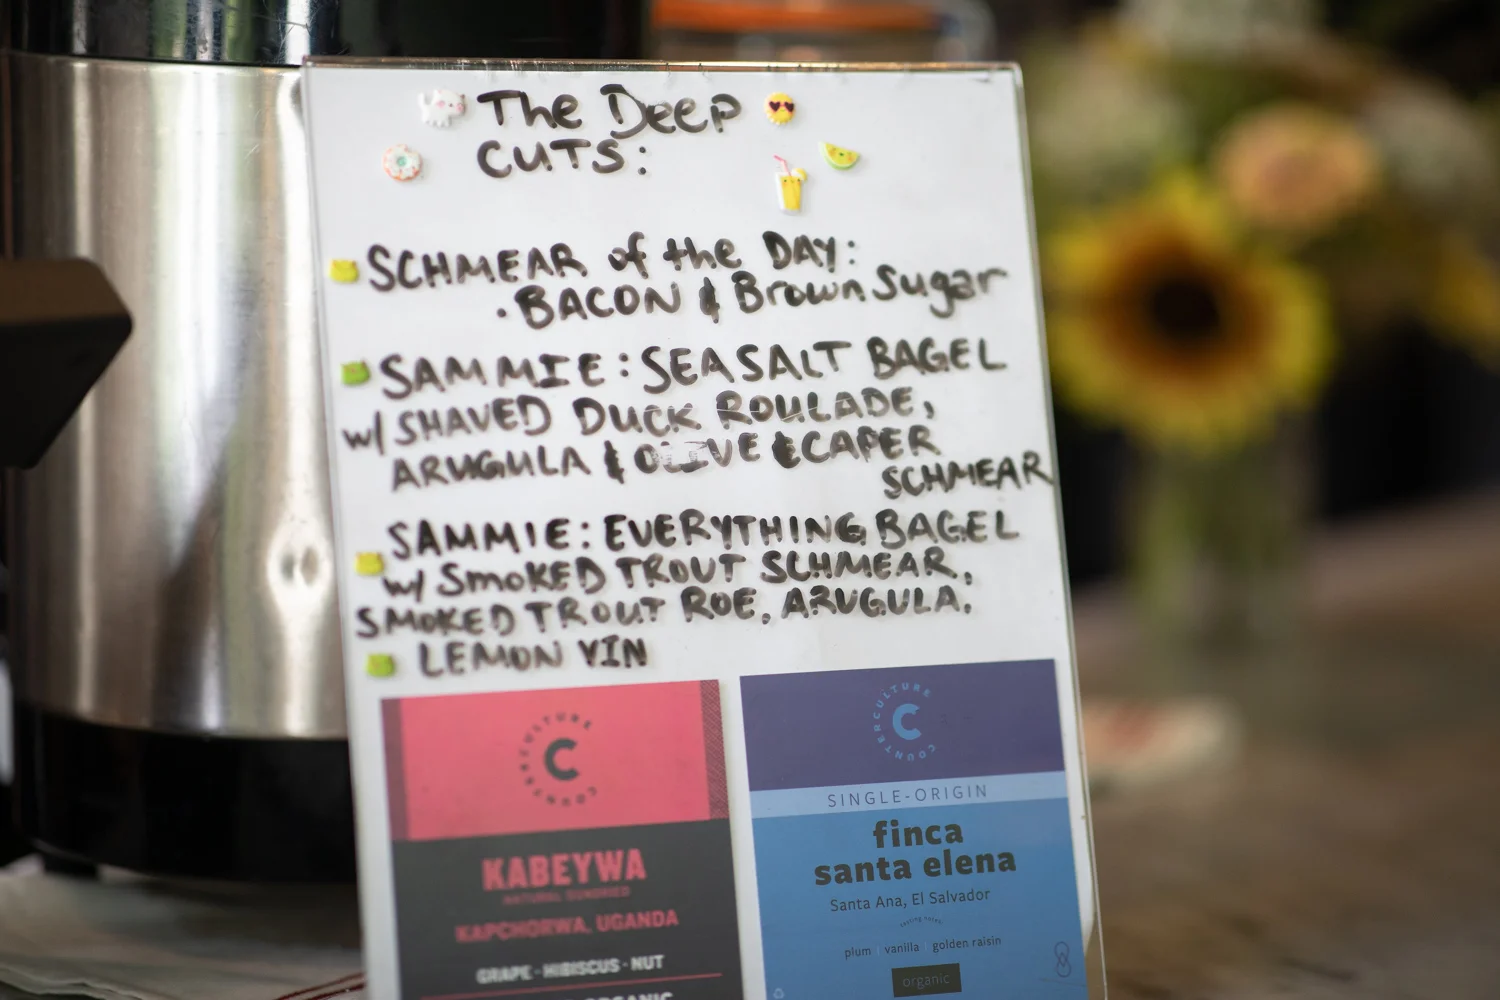 The Deep
CUTS:
SCHMEAR of the DAY:
· BACON & Brown Sugar
SAMMIE: SEA SALT BAGEL
w/ SHAVED DUCK ROULADE,
ARUGULA & OLIVE & CAPER
SCHMEAR
SAMMIE: EVERYTHING BAGEL
w/ SMOKED TROUT SCHMEAR,
SMOKED TROUT ROE, ARUGULA,
LEMON VIN
COUNTER CULTURE
C
KABEYWA
NATURAL SUNDRIED
KAPCHORWA, UGANDA
GRAPE · HIBISCUS · NUT
ORGANIC
COUNTER CULTURE
C
SINGLE-ORIGIN
finca
santa elena
Santa Ana, El Salvador
tasting notes
plum | vanilla | golden raisin
organic